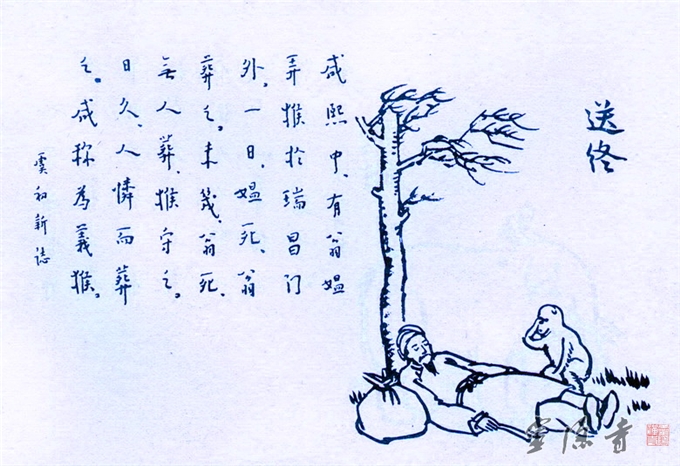 送终
咸熙中、有翁媪
弄猴於瑞昌门
外、一日、媪死、翁
葬之。未幾、翁死、
无人葬、猴守之。
日久、人憐而葬
之。咸称为義猴。
虞初新誌